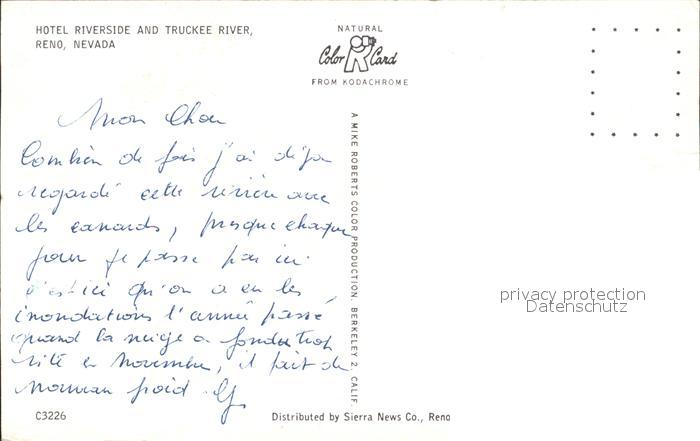 HOTEL RIVERSIDE AND TRUCKEE RIVER,
RENO, NEVADA
NATURAL
Color Card
FROM KODACHROME
Mon Chou
Combien de fois j'ai déjà
regardé cette rivière avec
les canards, presque chaque
jour je passe par ici
c'est ici qu'on a eu les
inondations l'année passé
quand la neige a fondu trop
vite en Novembre, il fait de
nouveau froid
A MIKE ROBERTS COLOR PRODUCTION, BERKELEY 2, CALIF.
privacy protection
Datenschutz
C3226
Distributed by Sierra News Co., Reno